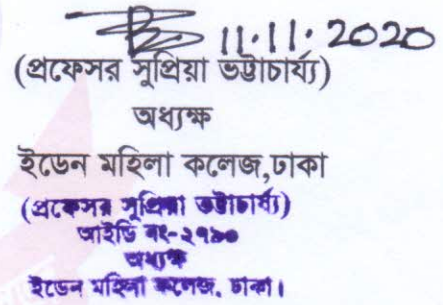 11.11.2020
(প্রফেসর সুপ্রিয়া ভট্টাচার্য্য)
অধ্যক্ষ
ইডেন মহিলা কলেজ,ঢাকা
(প্রফেসর সুপ্রিয়া ভট্টাচার্য্য)
আইডি নং-২৭৯০
অধ্যক্ষ
ইডেন মহিলা কলেজ, ঢাকা।